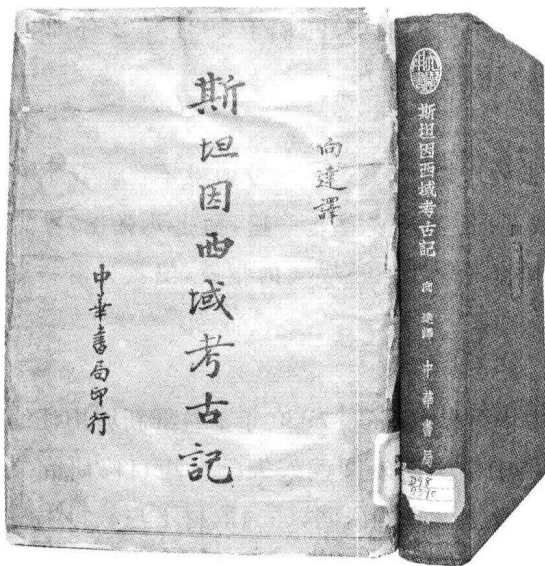 向達譯
斯坦因西域考古記
中華書局印行
斯坦因西域考古記
向達譯
中華書局